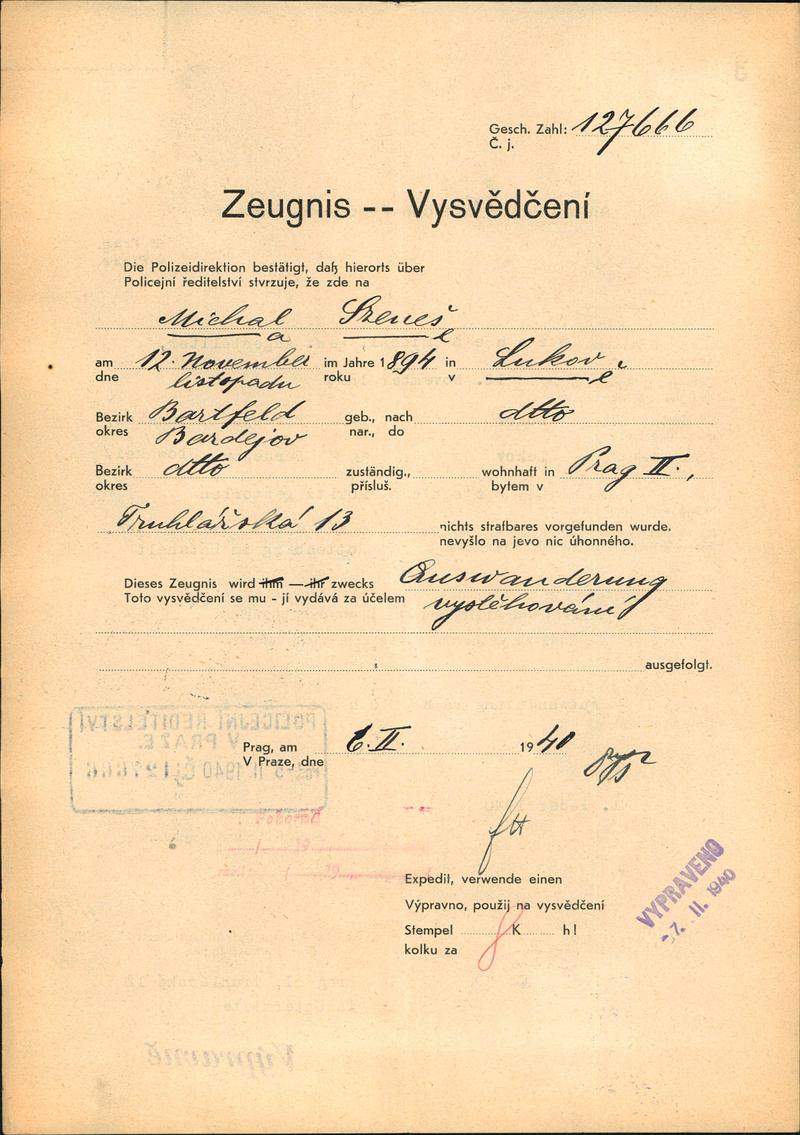 Gesch. Zahl: 127666
Č. j.
Zeugnis -- Vysvědčení
Die Polizeidirektion bestätigt, daß hierorts über
Policejní ředitelství stvrzuje, že zde na
Michal Szeneš
a e
am 12. November im Jahre 1894 in Lukov,
dne listopadu roku v ě
Bezirk Bartfeld geb., nach dtto
okres Bardejov nar., do
Bezirk dtto zuständig., wohnhaft in Prag II.,
okres přísluš. bytem v
Truhlářská 13 nichts strafbares vorgefunden wurde.
nevyšlo na jevo nic úhonného.
Dieses Zeugnis wird ihm — ihr zwecks Auswanderung
Toto vysvědčení se mu - jí vydává za účelem vystěhování
ausgefolgt.
POLICEJNÍ ŘEDITELSTVÍ
V PRAZE.
II. 1940 Čj 127666
Prag, am 6. II. 1940
V Praze, dne
Expedit, verwende einen
Výpravno, použij na vysvědčení
Stempel 8 K h!
kolku za
VYPRAVENO
-7. II. 1940
Výpravně